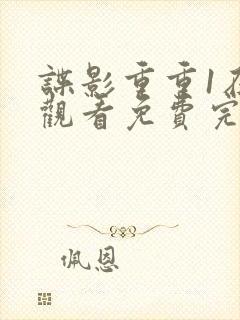 諜影重重1在
觀看免費完
佩恩